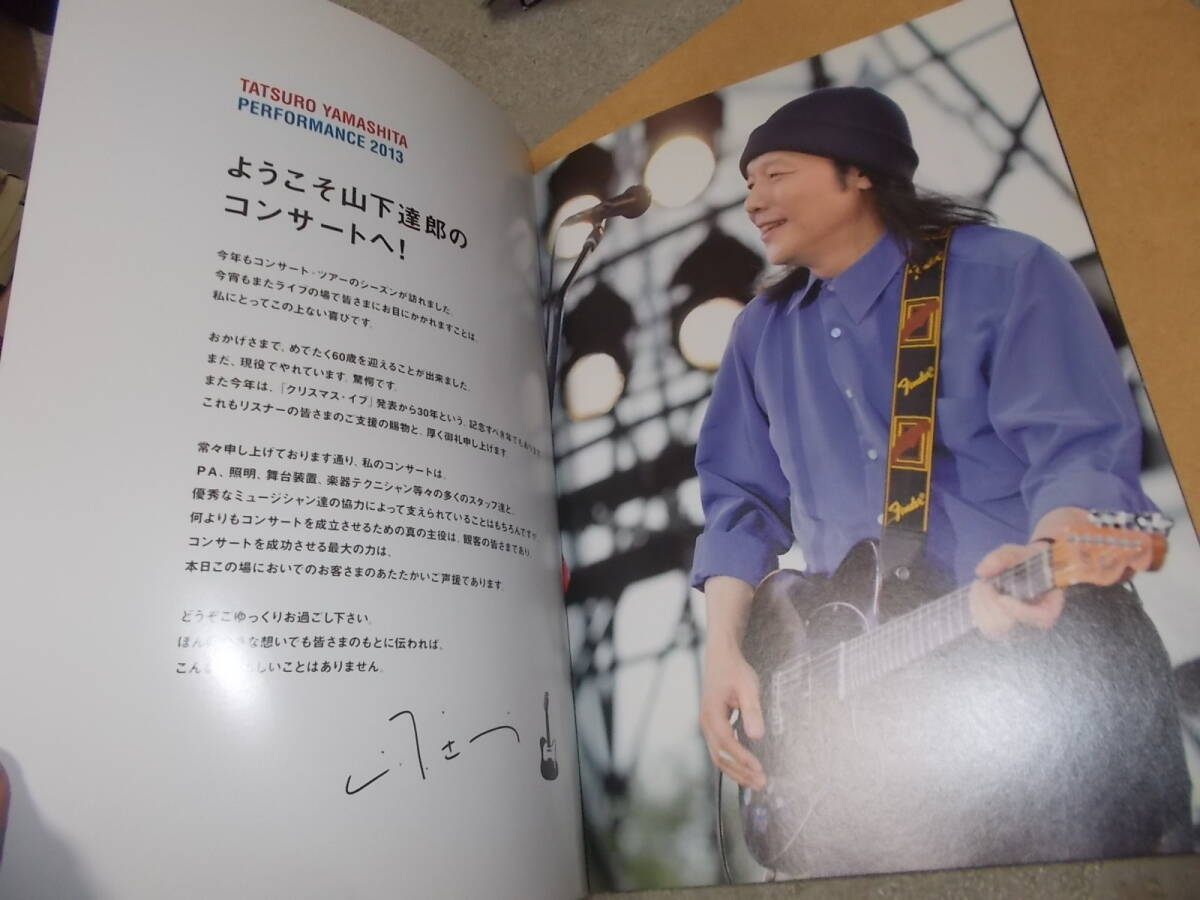 TATSURO YAMASHITA
PERFORMANCE 2013
ようこそ山下達郎の
コンサートへ!
今年もコンサート・ツアーのシーズンが訪れました。
今宵もまたライブの場で皆さまにお目にかかれますことは、
私にとってこの上ない喜びです。
おかげさまで、めでたく60歳を迎えることが出来ました。
まだ、現役でやれています。驚愕です。
また今年は、「クリスマス・イブ」発表から30年という、記念すべき年でもあります
これもリスナーの皆さまのご支援の賜物と、厚く御礼申し上げます
常々申し上げております通り、私のコンサートは、
PA、照明、舞台装置、楽器テクニシャン等々の多くのスタッフ達と、
優秀なミュージシャン達の協力によって支えられていることはもちろんですが
何よりもコンサートを成立させるための真の主役は、観客の皆さまであり、
コンサートを成功させる最大の力は、
本日この場においてのお客さまのあたたかいご声援であります。
どうぞごゆっくりお過ごし下さい。
ほん な想いでも皆さまのもとに伝われば、
こん しいことはありません。
Fender
Fender